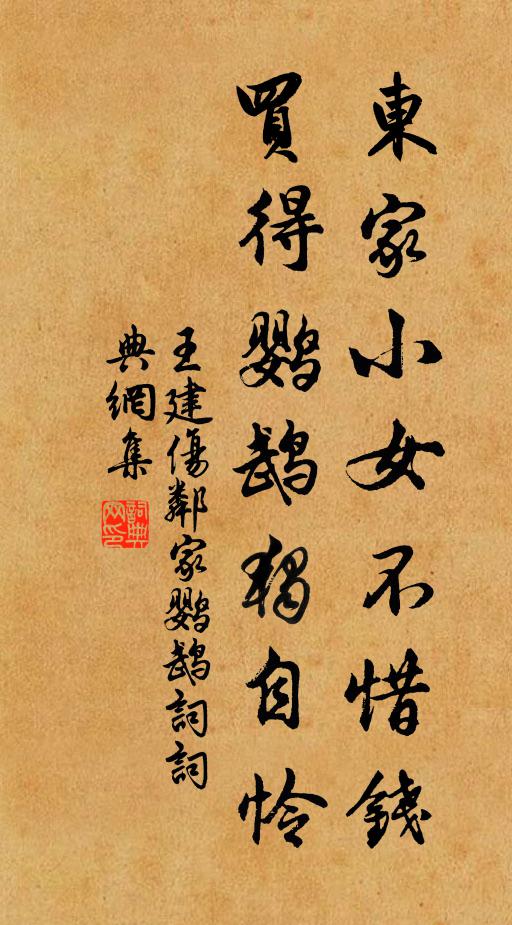 東家小女不惜錢
買得鸚鵡獨自怜
王建傷鄰家鸚鵡詞詞
典網集
詞典
网印